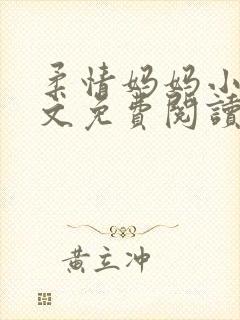 柔情妈妈小
文免費閱讀
黃立冲